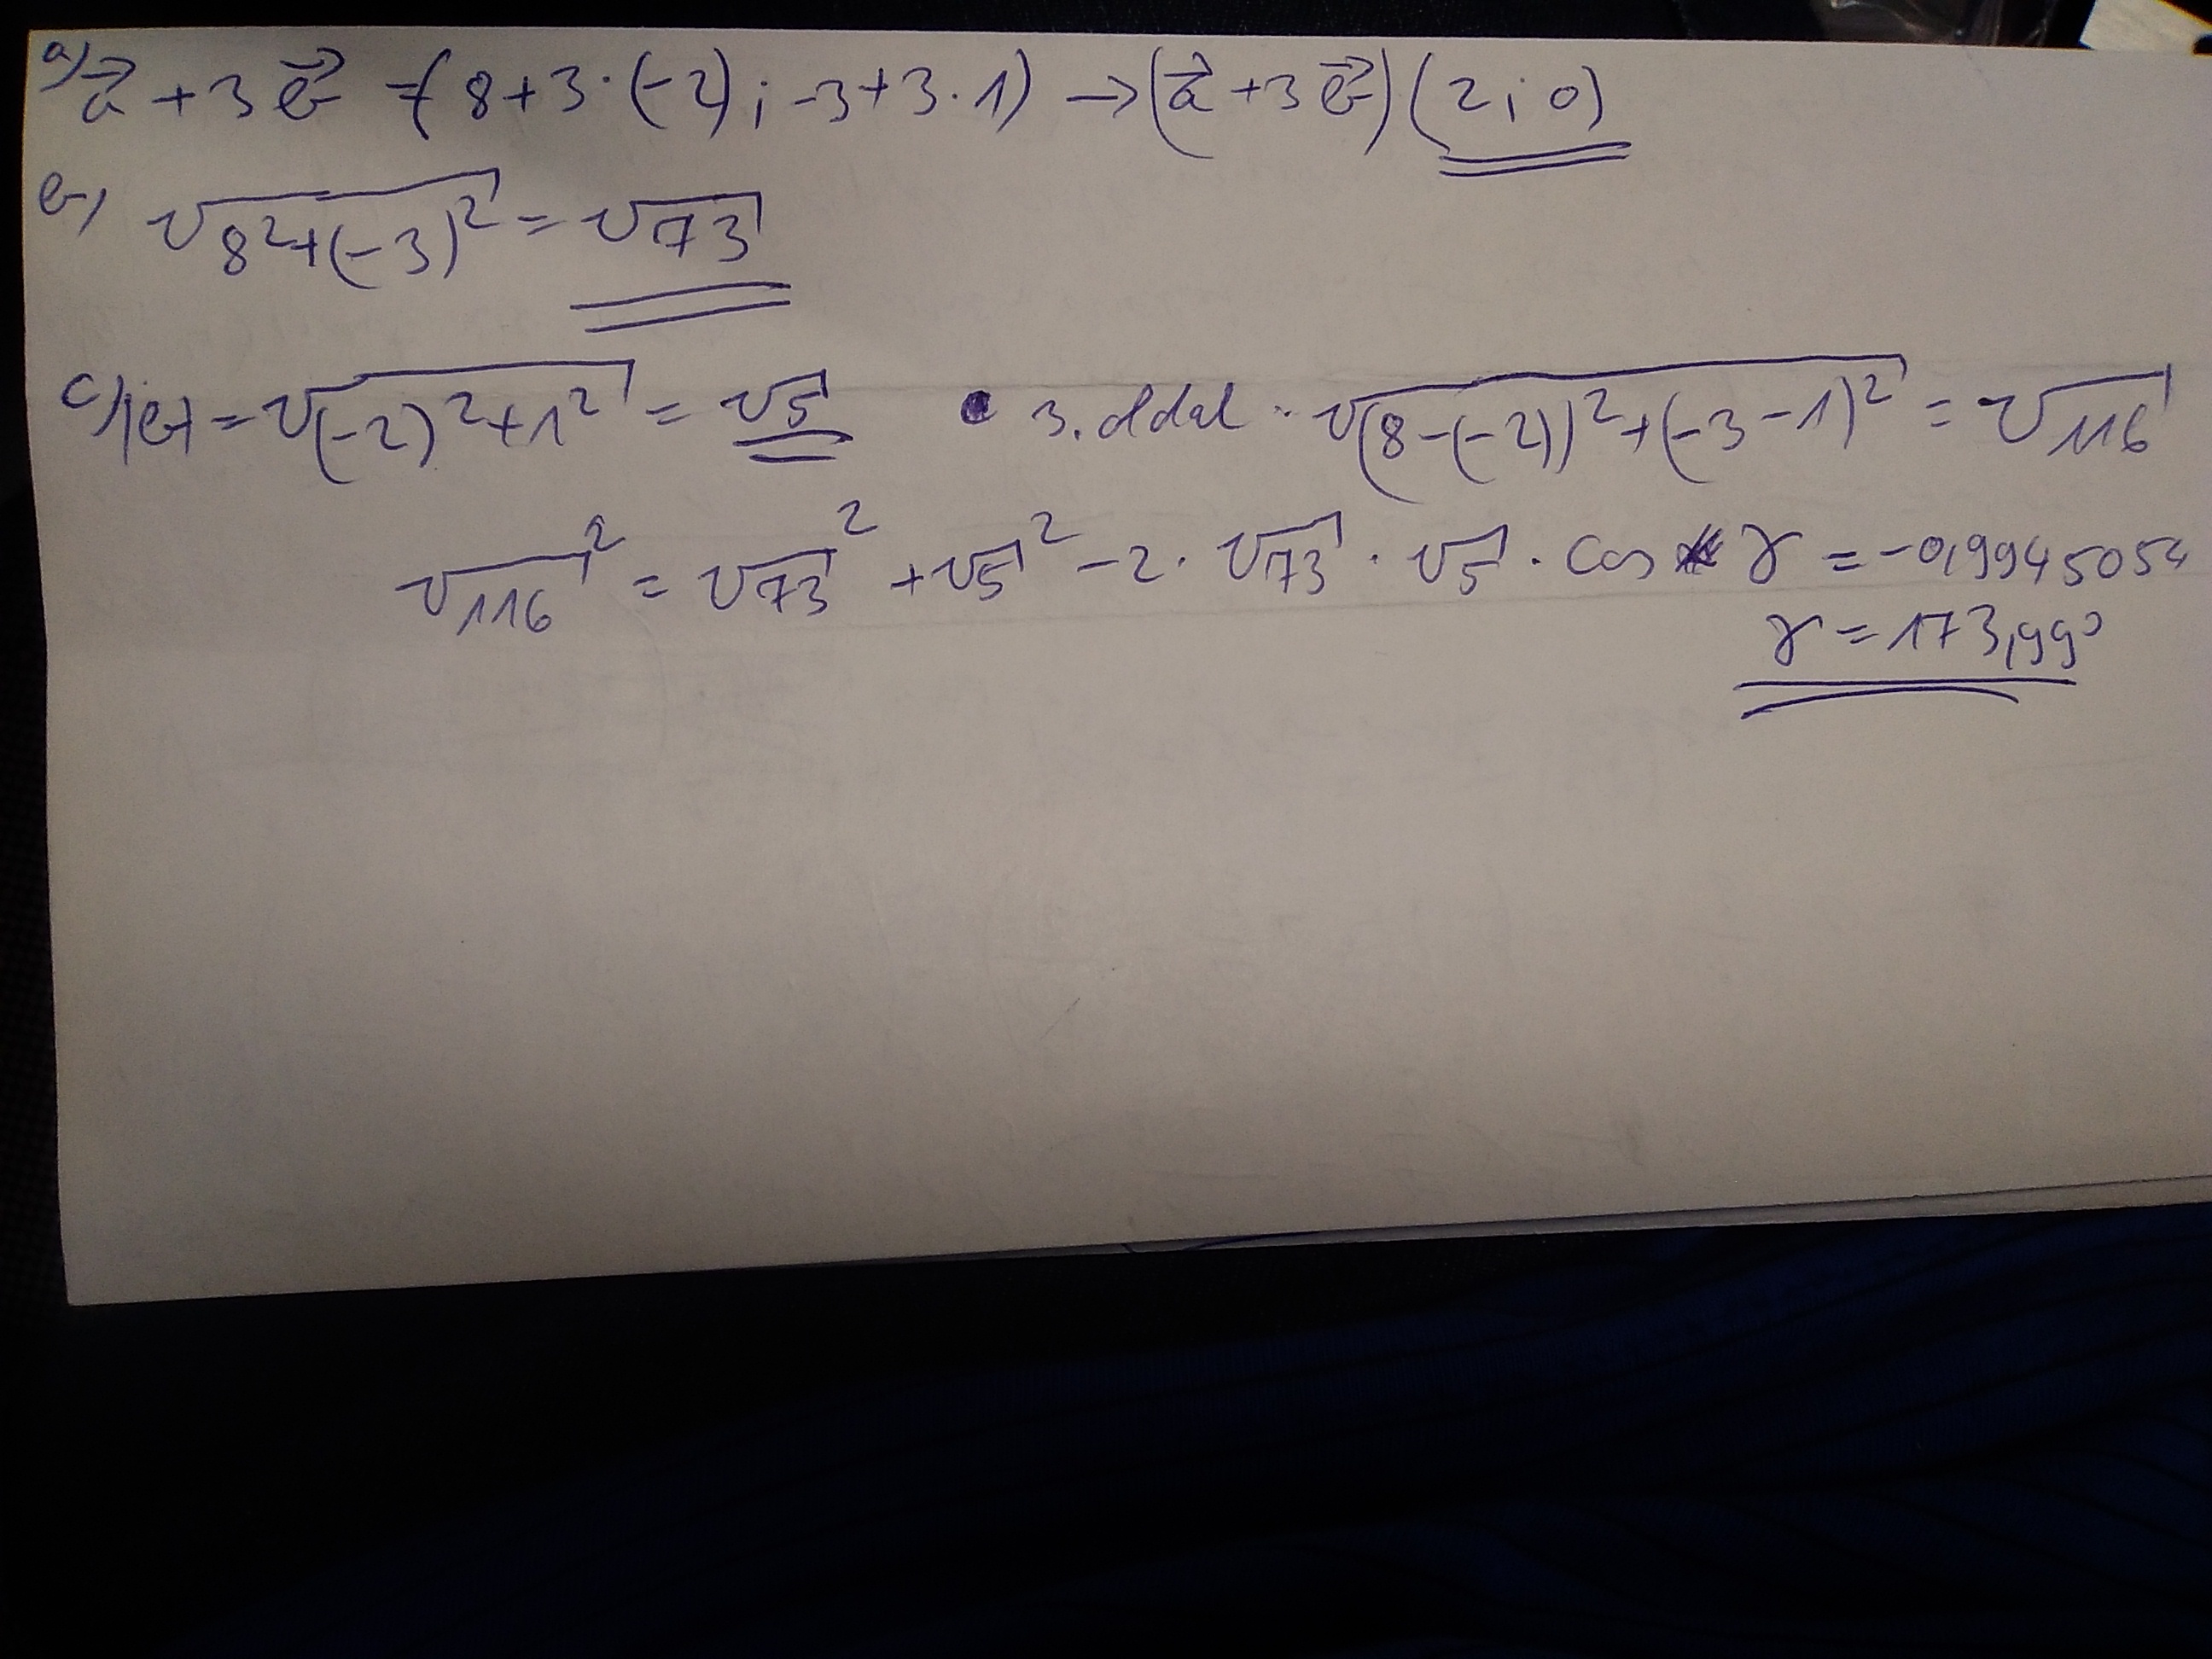 a) a⃗ + 3 b⃗ = (8+3·(-2); -3+3·1) → (a⃗ +3 b⃗) (2; 0)
b) √(8²+(-3)²) = √73
c) |b| = √((-2)²+1²) = √5 3. oldal: √((8-(-2))²+(-3-1)²) = √116
√116² = √73² + √5² - 2 · √73 · √5 · cos γ = -0,9945054
γ = 173,99°